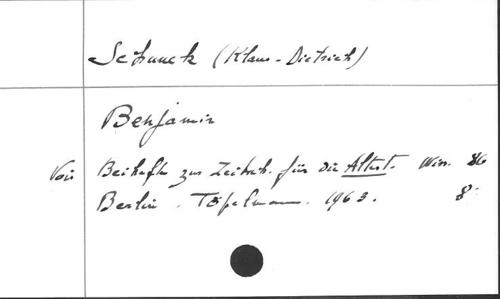 Schunck (Klaus-Dietrich)
Benjamin
Voir Beihefte zur Zeitsch. für die Altest. Wiss. 86
Berlin. Töpelmann. 1963. 8°